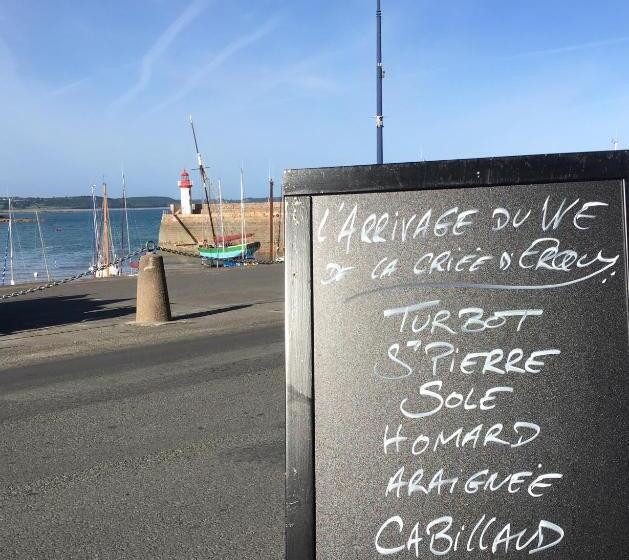 L'ARRIVAGE DU WE
DE LA CRIÉE D'ERQUY.
TURBOT
ST PIERRE
SOLE
HOMARD
ARAIGNÉE
CABILLAUD